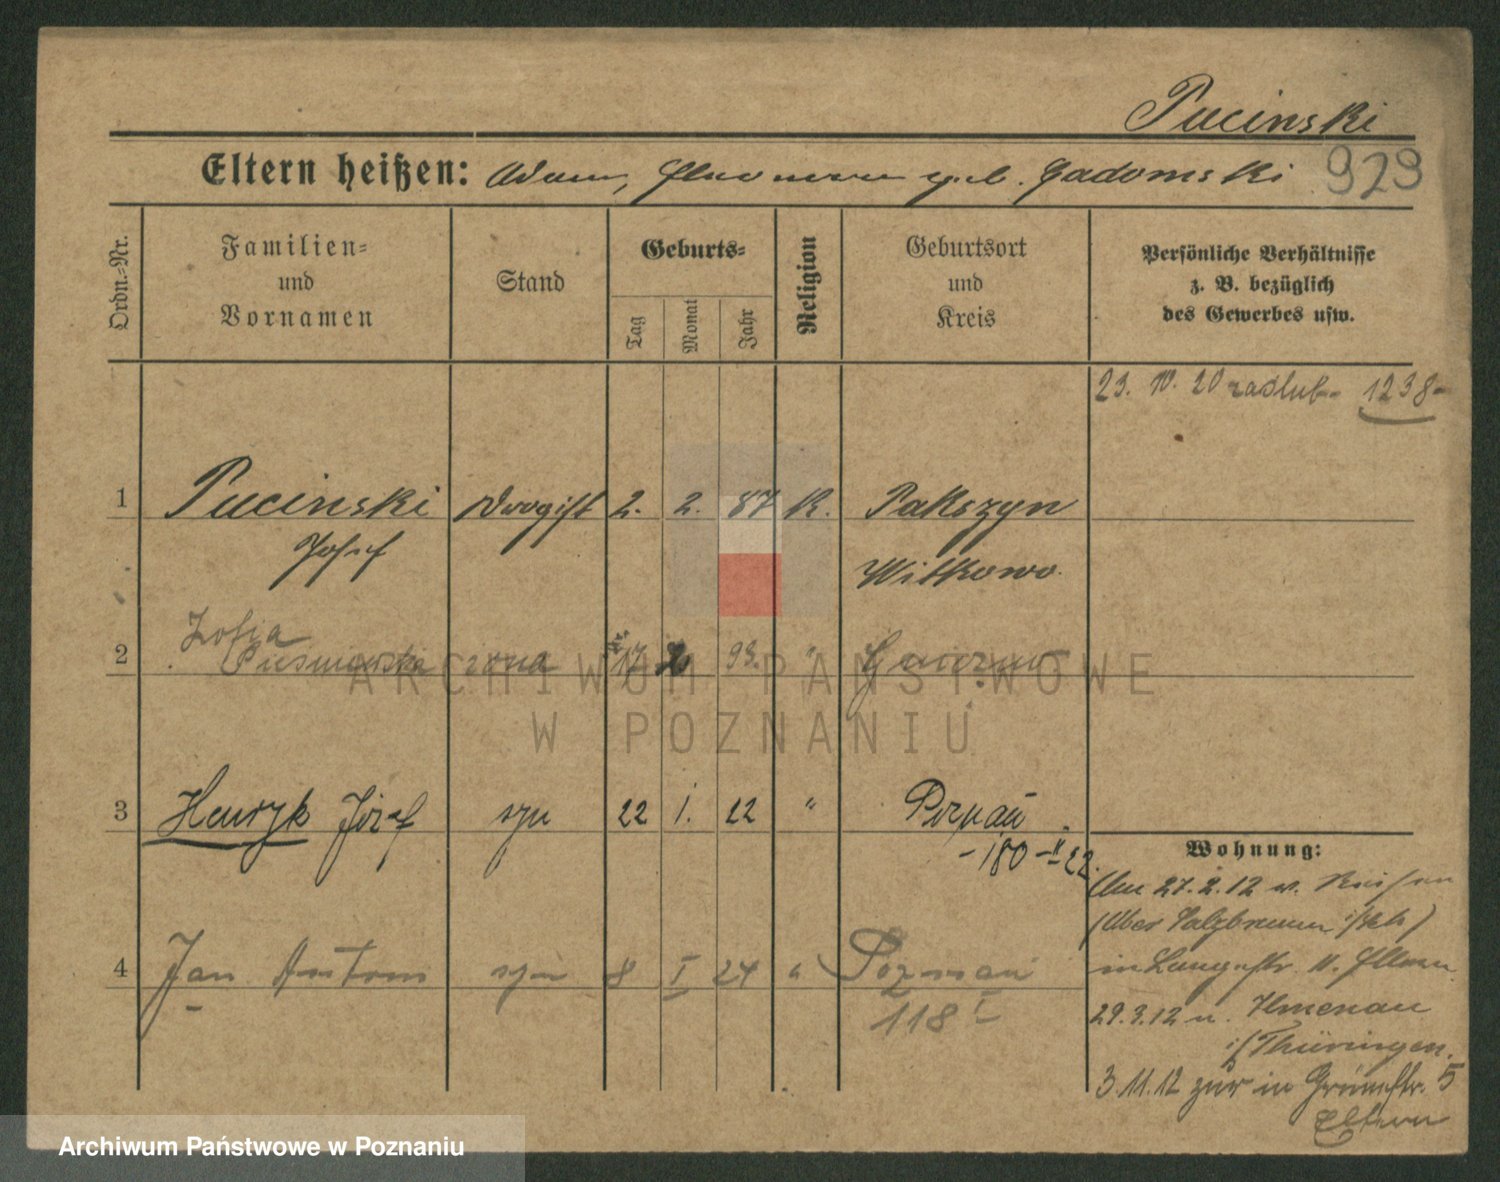 Pucinski
Eltern heißen: Adam, geb. Gadomski 929
Ordn.=Nr.
Familien=
und
Vornamen
Stand
Geburts=
Tag
Monat
Jahr
Religion
Geburtsort
und
Kreis
Persönliche Verhältnisse
z. B. bezüglich
des Gewerbes usw.
23. 10. 20 zaślub. 1238
1 Pucinski Drogist 2. 2. 87 K. Pakszyn
Josef Witkowo.
Zofia
2 żona 17 93. "
3 Henryk Józef syn 22 1. 22 " Poznań
-180-II 22.
4 Jan Antoni syn 8 I 24 " Poznań
118 I
Wohnung:
Am 27.2.12 v.
(Ober Salzbrunn i/Schl)
in Langestr. 11. Eltern
29.3.12 n. Ilmenau
i/Thüringen.
3.11.12 zur in Grünestr. 5
Eltern
ARCHIWUM PAŃSTWOWE
W POZNANIU
Archiwum Państwowe w Poznaniu